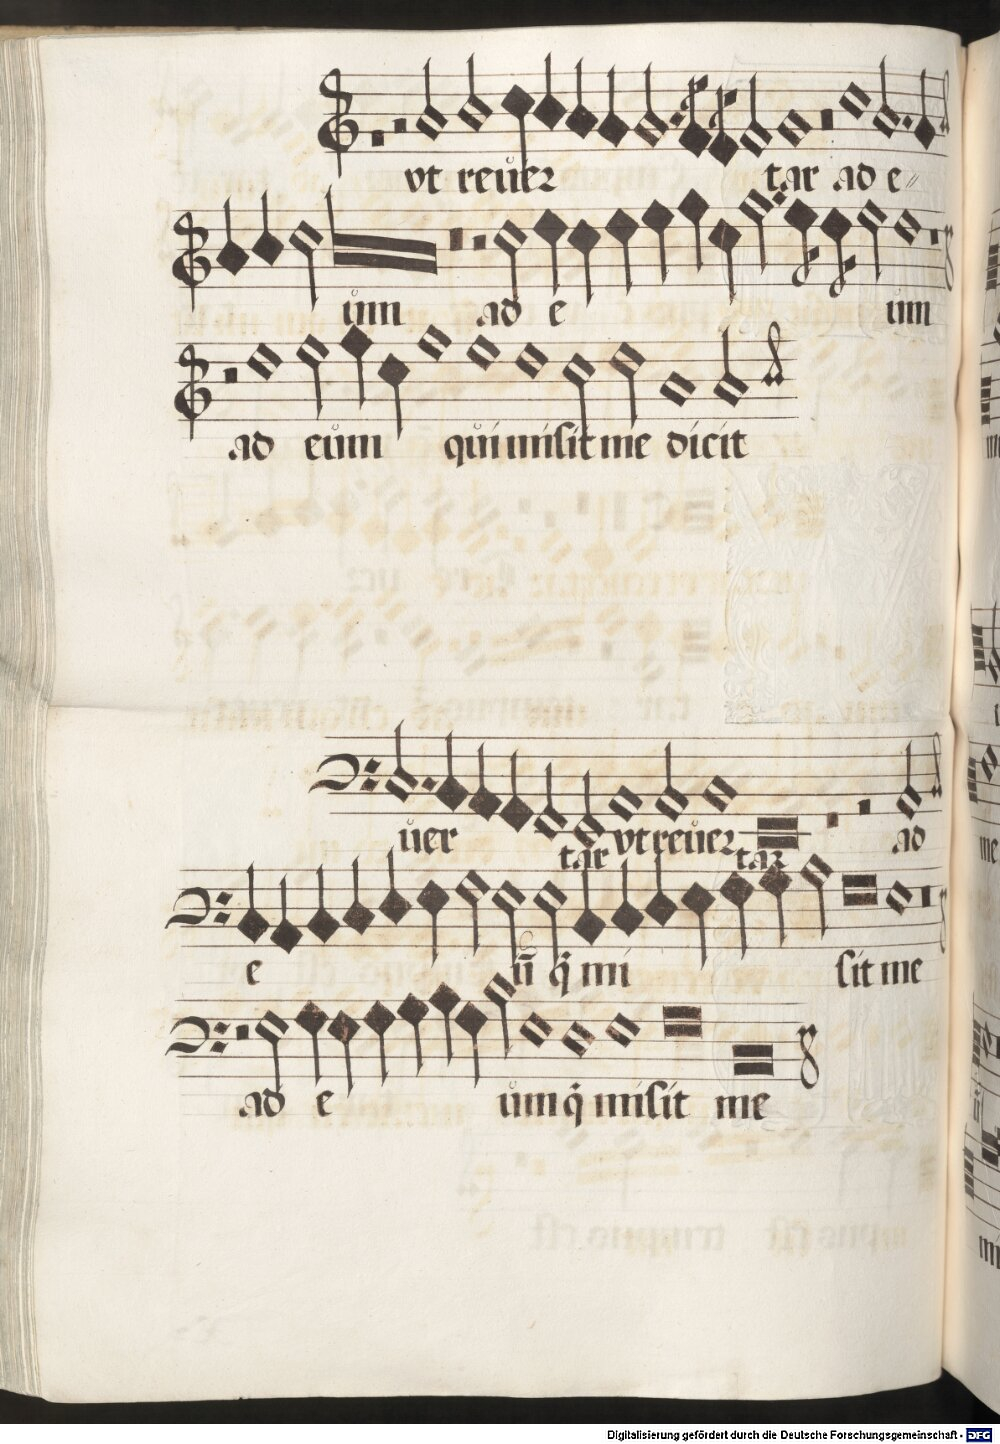 vt reůer tar ad e〃
ům ad e um
ad eům qui misit me dicit
ůer tar vt reůer tar ad
e u̅ q̃ mi sit me
ad e ům q̃ misit me
me
Digitalisierung gefördert durch die Deutsche Forschungsgemeinschaft - DFG